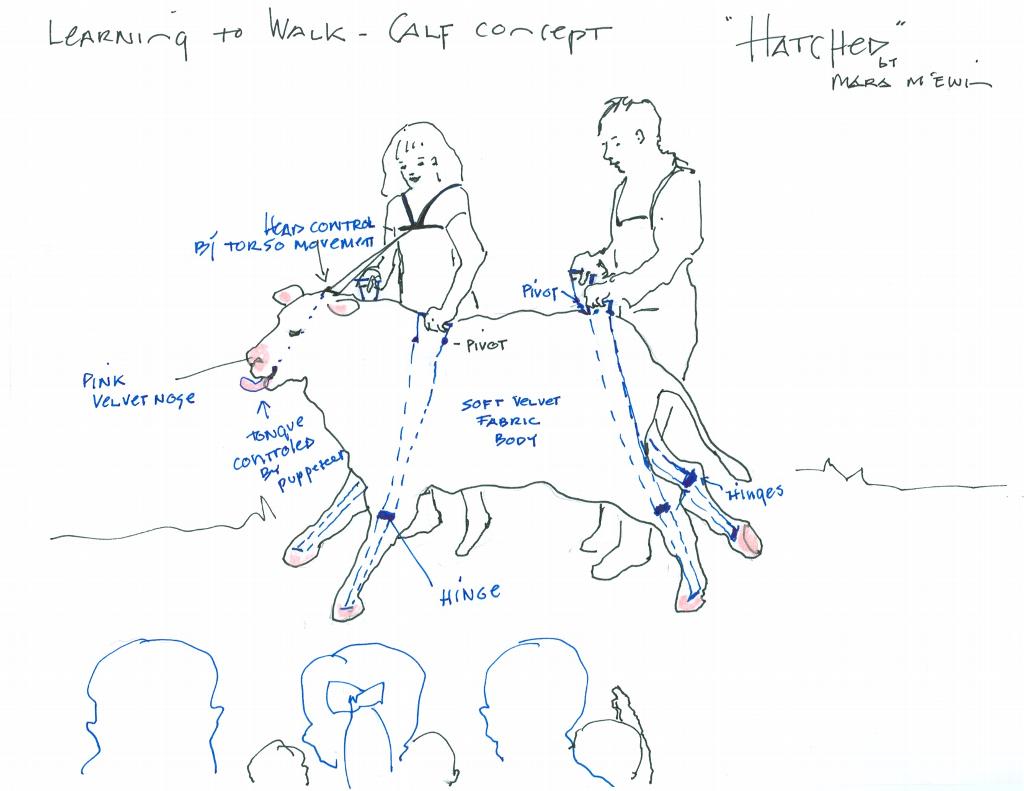 Learning to Walk - Calf concept
"Hatched"
by
Mara M'Ewin
Head control
By torso movement
Pivot
- Pivot
Pink
Velvet Nose
Soft Velvet
Fabric
Body
Tongue
controled
By
puppeteer
Hinges
Hinge